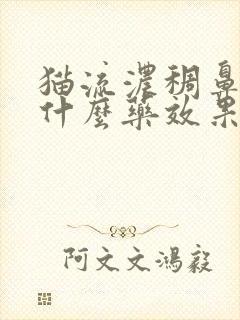 猫流濃稠鼻
什麼藥效果
阿文文鴻毅